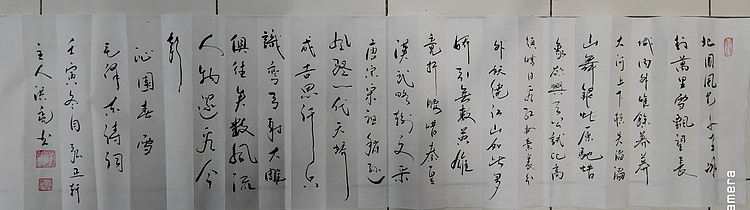 北国風光千里冰
封萬里雪飄望長
城内外惟餘莽莽
大河上下顿失滔滔
山舞銀蛇原馳蜡
象欲與天公試比高
須晴日看红妆素裹分
外妖娆江山如此多
娇引無數英雄
竞折腰惜秦皇
漢武略输文采
唐宗宋祖稍逊
風骚一代天骄
成吉思汗只
識弯弓射大雕
俱往矣數風流
人物還看今
朝
沁園春雪
毛泽东詩詞
壬寅冬月五轩
主人書
amera